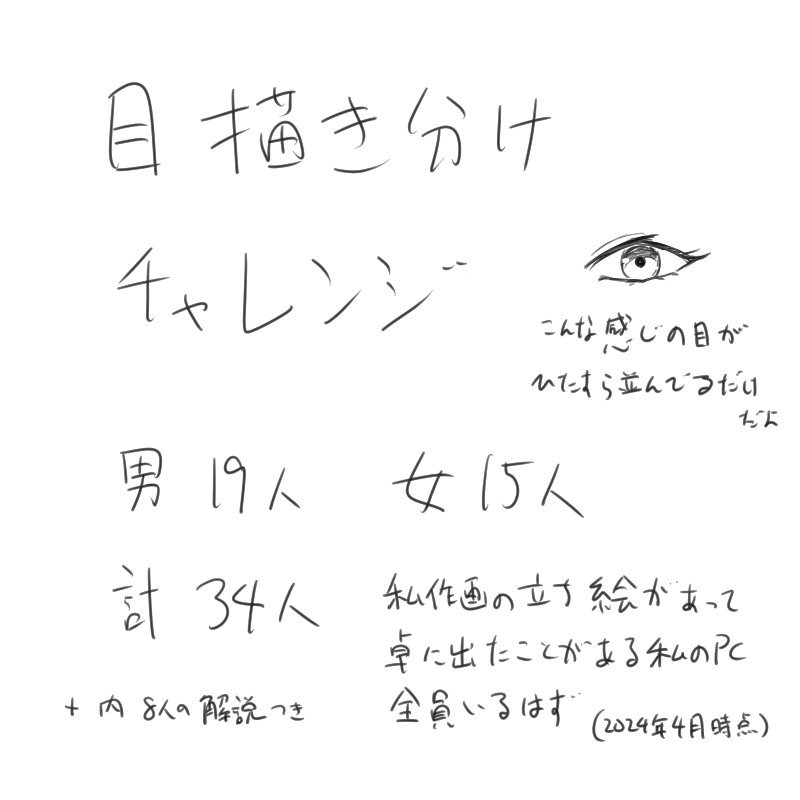 目描き分け
チャレンジ
こんな感じの目が
ひたすら並んでるだけ
だよ
男 19人 女 15人
計 34人
私作画の立ち絵があって
卓に出たことがある私のPC
全員いるはず
(2024年4月時点)
+ 内 8人の解説つき